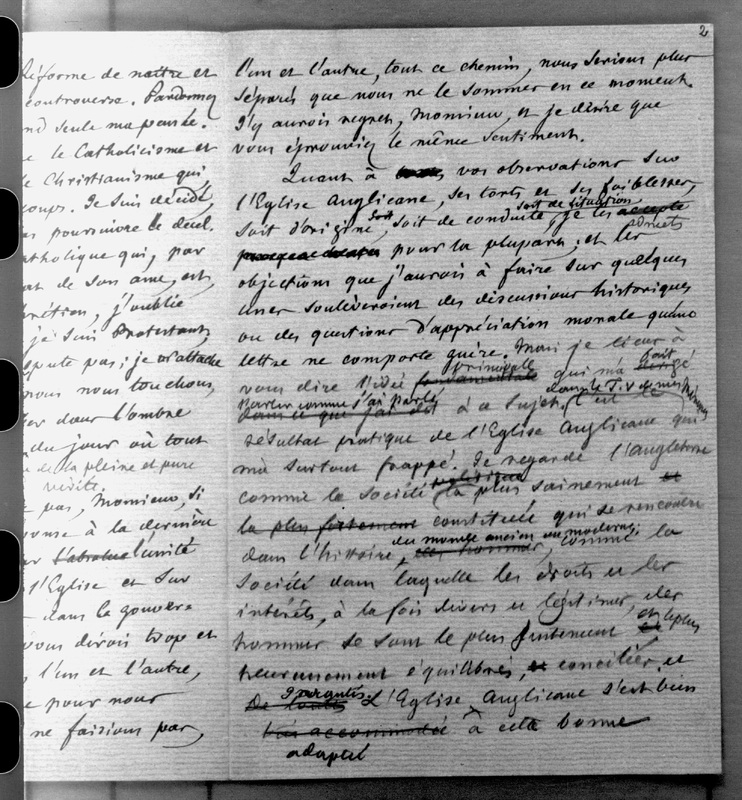 Réforme de naître et
controverse. Pardonnez
seule ma pensée.
le Catholicisme et
le Christianisme qui
coups. Je suis décidé,
poursuivre le duel.
catholique qui, par
de son âme, est,
chrétien, j'oublie
je suis Protestant,
dispute pas; je m'attache
nous nous touchons,
dans l'ombre
du jour où tout
de la pleine et pure
vérité.
pas, Monsieur, si
réponse à la dernière
l'absolue l'unité
l'Eglise et sur
dans le gouver=
vous dirois trop et
l'un et l'autre,
pour nous
ne faisions pas,
2
l'un et l'autre, tout ce chemin, nous serions plus
séparés que nous ne le sommes en ce moment.
J'y aurois regret, Monsieur, et je désire que
vous éprouviez le même sentiment.
Quant à vos observations sur
l'Eglise Anglicane, ses torts et ses faiblesses,
soit de situation,
soit d'origine, soit de conduite, je les accepte
admets
pour la plupart; et les
objections que j'aurois à faire sur quelques
unes soulèveroient des discussions historiques
ou des questions d'appréciation morale qu'une
lettre ne comporte guère. Mais je tiens à
primordiale fait
vous dire l'idée fondamentale qui m'a dirigé
parler comme j'ai parlé dans le T. V de mes Mémoires
dans ce que j'ai dit à ce sujet. C'est le
résultat pratique de l'Eglise Anglicane qui
m'a surtout frappé. Je regarde l'Angleterre
politique
comme la société la plus sainement et
la plus fortement constituée qui se rencontre
du monde ancien ou moderne,
dans l'histoire des hommes, comme la
société dans laquelle les droits et les
intérêts, à la fois divers et légitimes, des
hommes se sont le plus fortement et le plus
heureusement équilibrés, et conciliés, et
garantis.
L'Eglise Anglicane s'est bien
accommodée à cette bonne
adapté